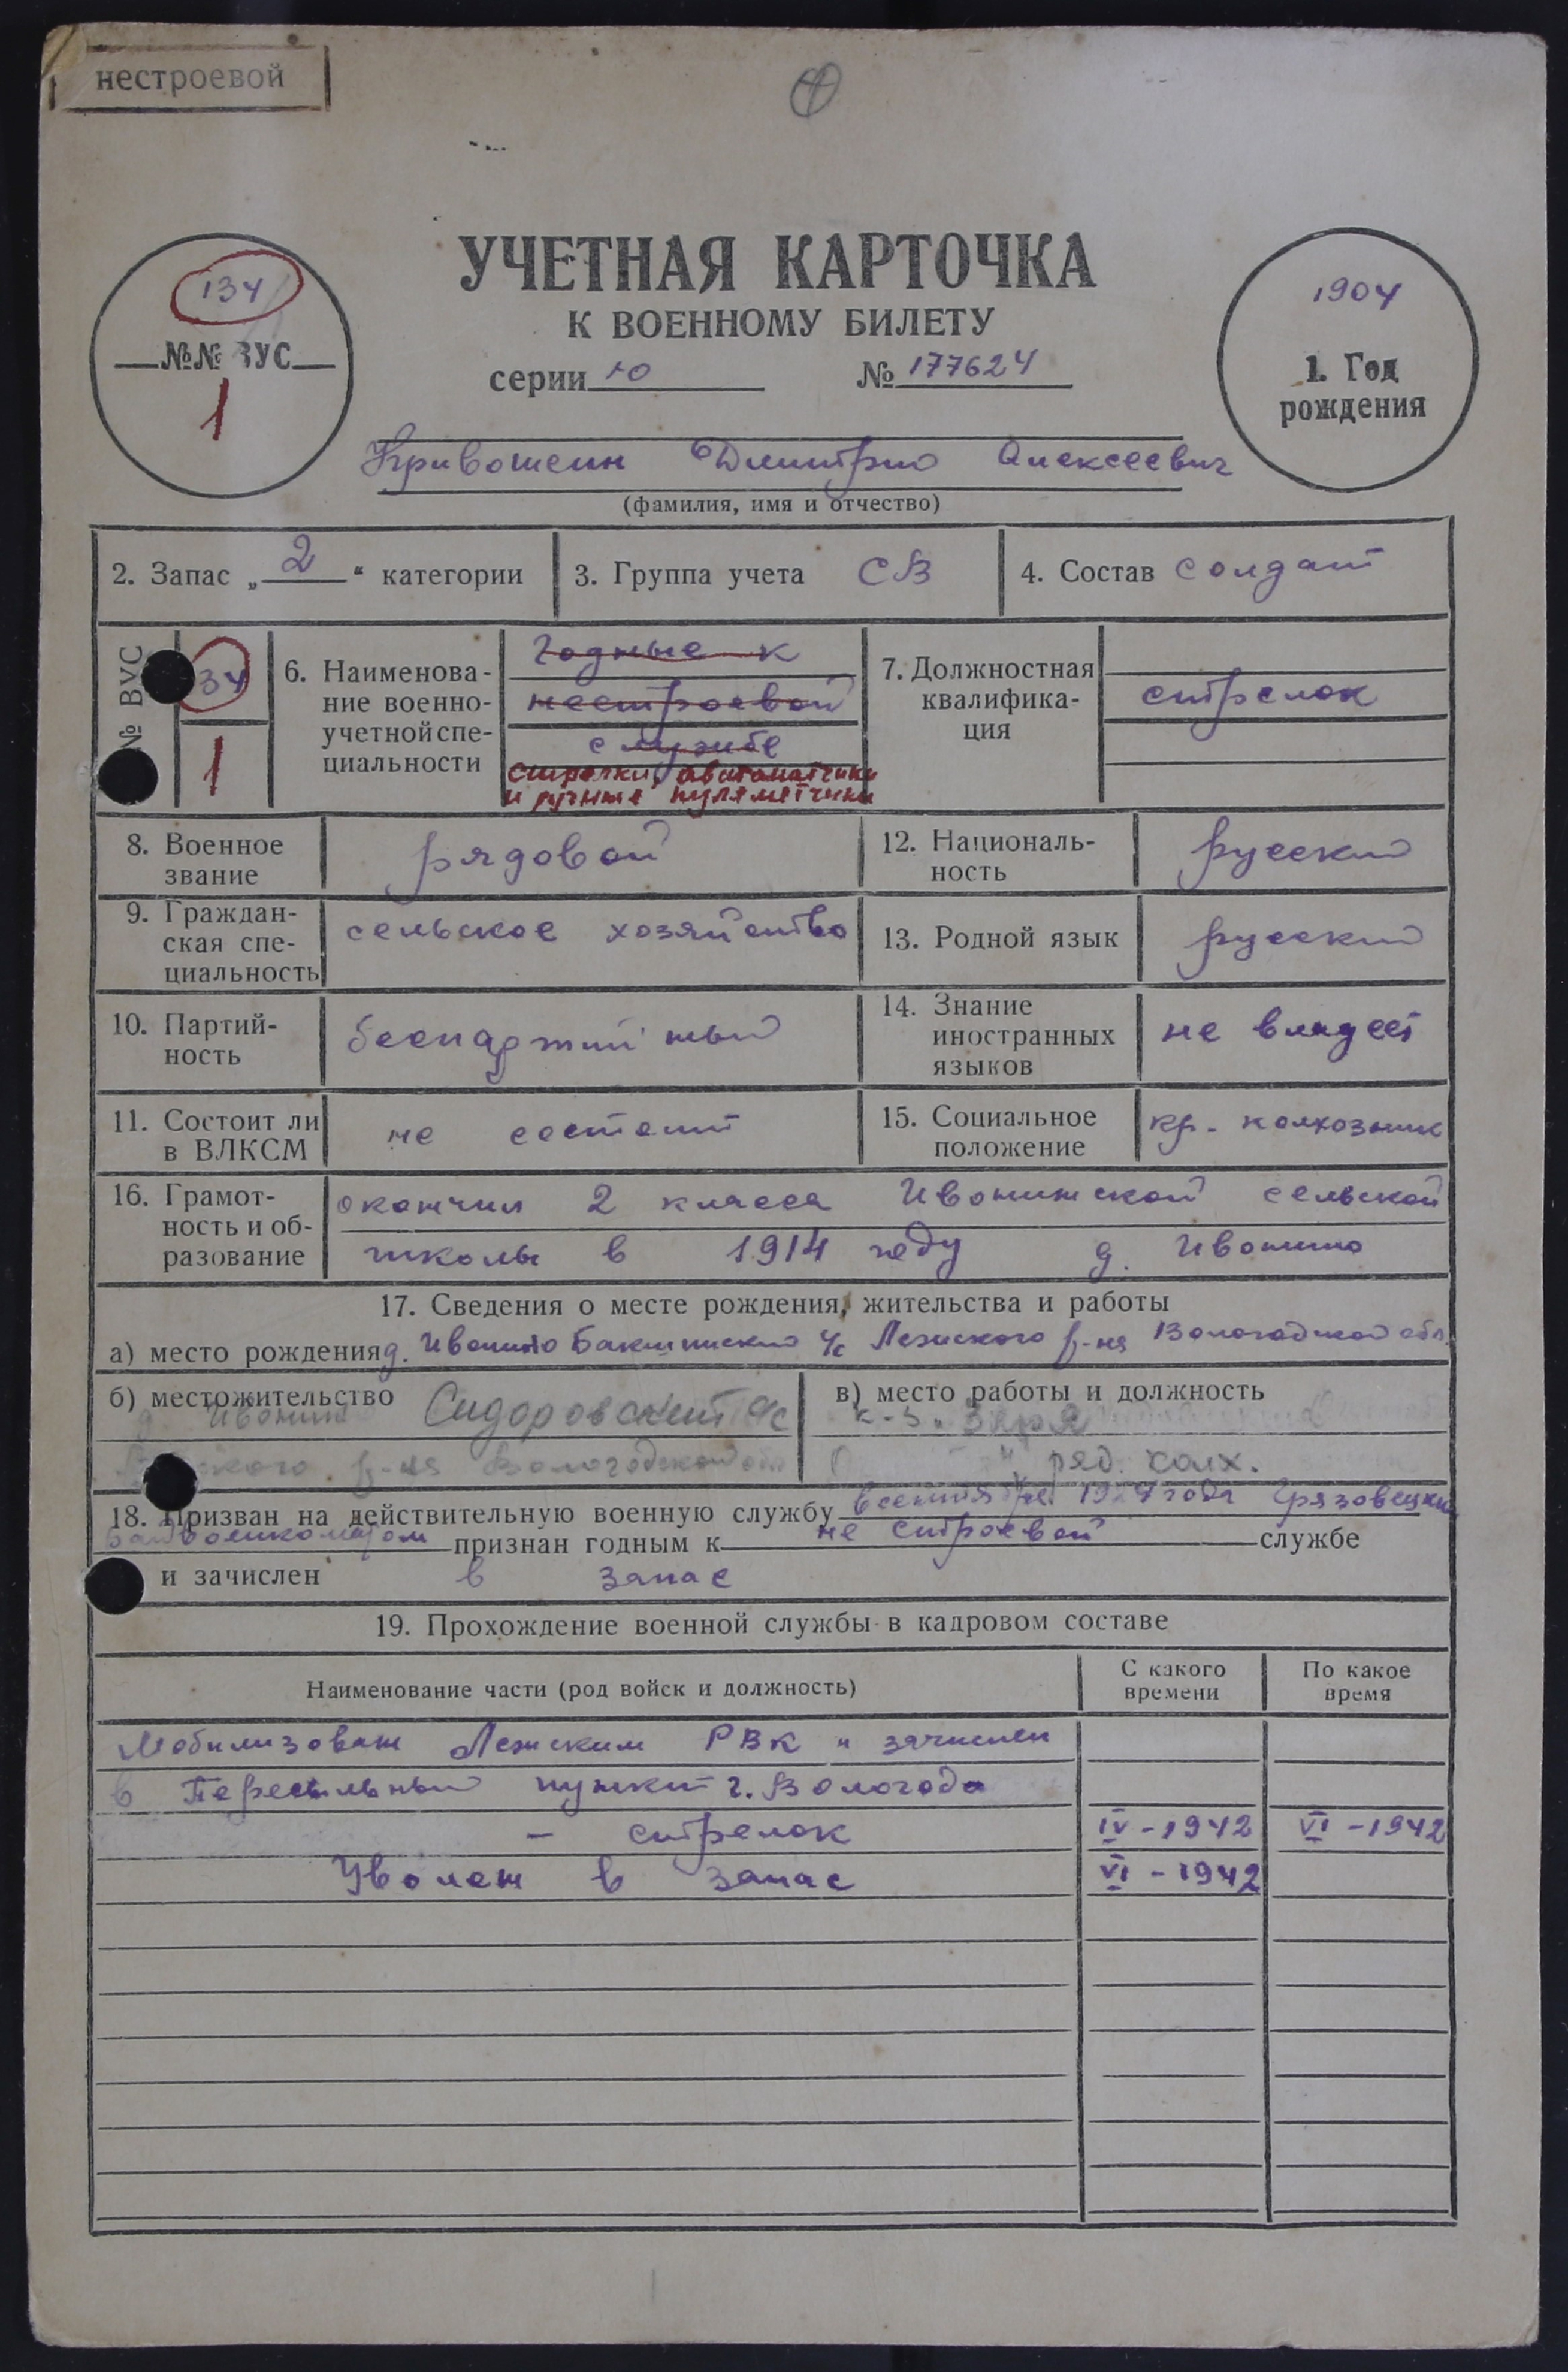 нестроевой
4
УЧЕТНАЯ КАРТОЧКА
К ВОЕННОМУ БИЛЕТУ
серии Ю № 177624
134
№№ ВУС
1
1904
1. Год
рождения
Кривошеин Дмитрий Алексеевич
(фамилия, имя и отчество)
2. Запас „ 2 “ категории
3. Группа учета СВ
4. Состав солдат
№ ВУС
34
1
6. Наименова-
ние военно-
учетной спе-
циальности
Годные к
нестроевой
службе
стрелки, автоматчики
и ручные пулеметчики
7. Должностная
квалифика-
ция
стрелок
8. Военное
звание
рядовой
12. Националь-
ность
русский
9. Граждан-
ская спе-
циальность
сельское хозяйство
13. Родной язык
русский
10. Партий-
ность
беспартийный
14. Знание
иностранных
языков
не владеет
11. Состоит ли
в ВЛКСМ
не состоит
15. Социальное
положение
кр. колхозник
16. Грамот-
ность и об-
разование
окончил 2 класса Ивонинской сельской
школы в 1914 году д. Ивонино
17. Сведения о месте рождения, жительства и работы
а) место рождения д. Ивонино Бакшинский с/с Лежского р-на Вологодской обл.
б) местожительство
д. Ивонино Сидоровский с/с
р-на Вологодской обл
в) место работы и должность
к-з. „Заря
" ряд. колх.
18. Призван на действительную военную службу в сентябре 1927 года Грязовецким
военкоматом признан годным к не строевой службе
и зачислен в запас
19. Прохождение военной службы в кадровом составе
Наименование части (род войск и должность)
С какого
времени
По какое
время
Мобилизован Лежским РВК и зачислен
в Пересыльный пункт г. Вологода
– стрелок IV - 1942 VI - 1942
Уволен в запас VI - 1942